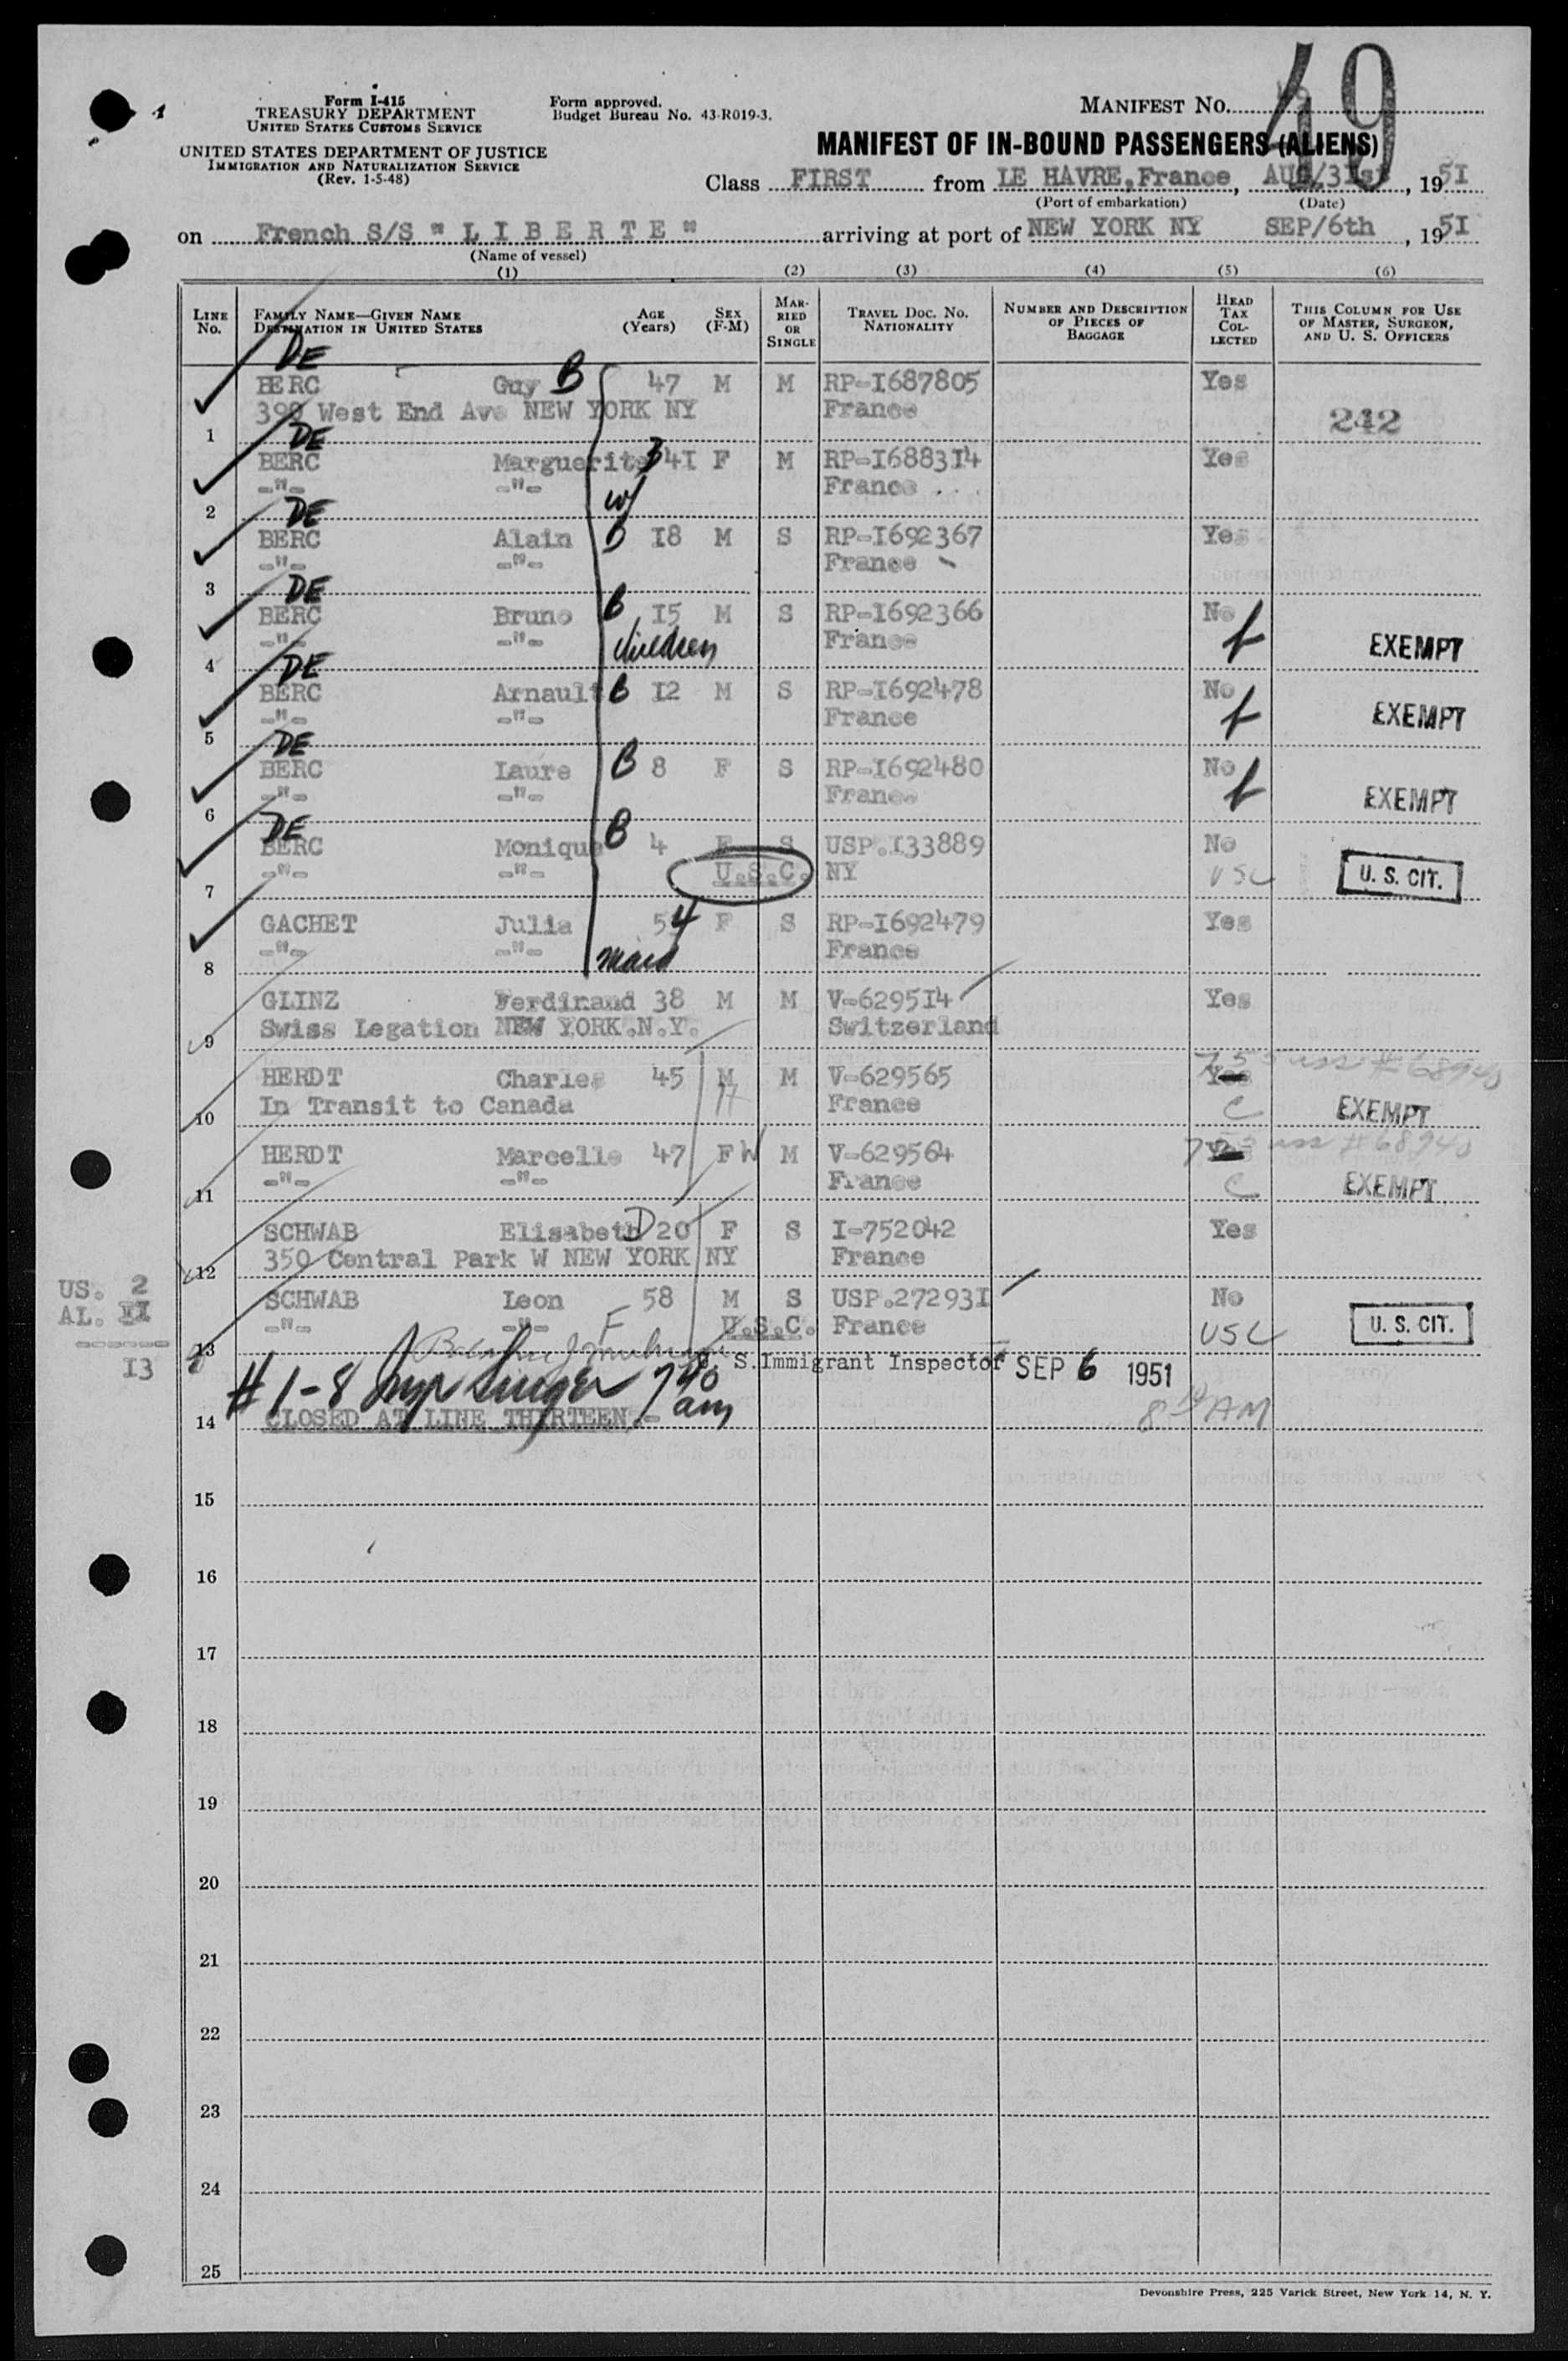 49
Form I-415
TREASURY DEPARTMENT
UNITED STATES CUSTOMS SERVICE
UNITED STATES DEPARTMENT OF JUSTICE
IMMIGRATION AND NATURALIZATION SERVICE
(Rev. 1-5-48)
Form approved.
Budget Bureau No. 43-R019-3.
MANIFEST NO.
MANIFEST OF IN-BOUND PASSENGERS (ALIENS)
Class FIRST from LE HAVRE, France, AUG/31st, 1951
(Port of embarkation) (Date)
on French S/S " L I B E R T E " arriving at port of NEW YORK NY SEP/6th, 1951
(Name of vessel)
(1) (2) (3) (4) (5) (6)
LINE No. FAMILY NAME—GIVEN NAME DESTINATION IN UNITED STATES AGE (Years) SEX (F-M) MARRIED OR SINGLE TRAVEL DOC. NO. NATIONALITY NUMBER AND DESCRIPTION OF PIECES OF BAGGAGE HEAD TAX COLLECTED THIS COLUMN FOR USE OF MASTER, SURGEON, AND U. S. OFFICERS
DE
BERC Guy B 47 M M RP-I687805 Yes
390 West End Ave NEW YORK NY France 242
1
DE
BERC Marguerite 41 F M RP-I688314 Yes
-"- -"- France
2 w/
DE
BERC Alain B 18 M S RP-I692367 Yes
-"- -"- France
3
DE
BERC Bruno B 15 M S RP-I692366 No
-"- -"- children France EXEMPT
4
DE
BERC Arnault B 12 M S RP-I692478 No
-"- -"- France EXEMPT
5
DE
BERC Laure B 8 F S RP-I692480 No
-"- -"- France EXEMPT
6
DE
BERC Monique B 4 F S USP.I33889 No
-"- -"- U.S.C. NY USC U. S. CIT.
7
GACHET Julia 54 F S RP-I692479 Yes
-"- -"- maid France
8
GLINZ Ferdinand 38 M M V-629514 Yes
Swiss Legation NEW YORK.N.Y. Switzerland
9
HERDT Charles 45 M M V-629565 Yes
In Transit to Canada H France C EXEMPT
10
HERDT Marcelle 47 F W M V-629564 #68940
-"- -"- France C EXEMPT
11
SCHWAB Elisabeth D 20 F S I-752042 Yes
350 Central Park W NEW YORK NY France
12
US. 2
AL. II
13
SCHWAB Leon 58 M S USP.272931 No
-"- -"- F U.S.C. France USC U. S. CIT.
13
U. S. Immigrant Inspector SEP 6 1951
# 1-8 Singer 7 40 am
8 AM
14 CLOSED AT LINE THIRTEEN.-
15
16
17
18
19
20
21
22
23
24
25
Devonshire Press, 225 Varick Street, New York 14, N. Y.